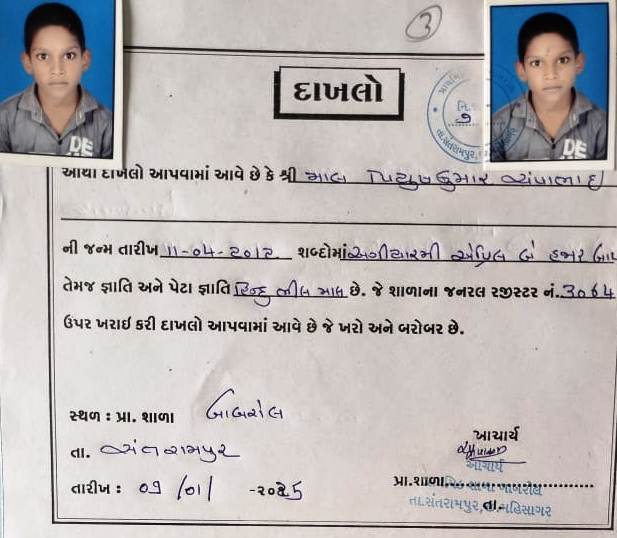 3
દાખલો
આથી દાખલો આપવામાં આવે છે કે શ્રી માલ પિયુષકુમાર ચંપાભાઇ
ની જન્મ તારીખ 11-04-2012 શબ્દોમાં અગીયારમી એપ્રિલ બે હજાર બાર
તેમજ જ્ઞાતિ અને પેટા જ્ઞાતિ હિન્દુ ભીલ માલ છે. જે શાળાના જનરલ રજીસ્ટર નં. 3064
ઉપર ખરાઇ કરી દાખલો આપવામાં આવે છે જે ખરો અને બરોબર છે.
સ્થળ : પ્રા. શાળા બાબરોલ
તા. સંતરામપુર
તારીખ : 09/01/-2025
આચાર્ય
આચાર્ય
પ્રા.શાળા
તા.સંતરામપુર, જી.મહિસાગર
DE
DE